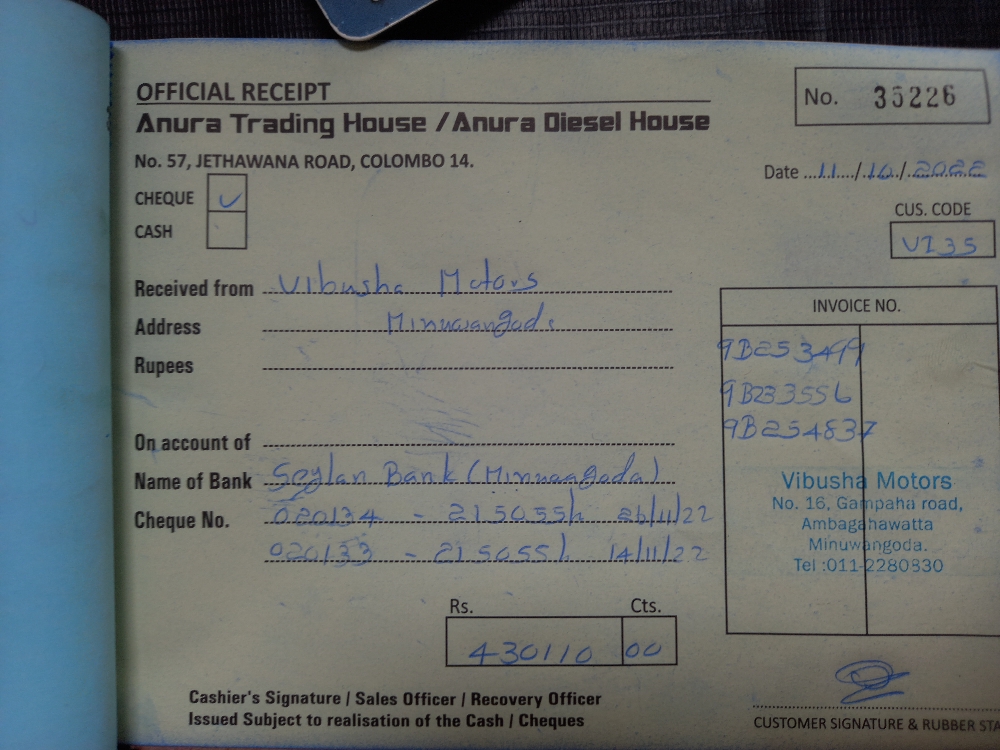 OFFICIAL RECEIPT
No. 35226
Anura Trading House / Anura Diesel House
No. 57, JETHAWANA ROAD, COLOMBO 14.
Date 11/10/2022
CHEQUE ✓
CASH
CUS. CODE
VI35
Received from Vibusha Motors
Address Minuwangoda
Rupees
On account of
Name of Bank Seylan Bank (Minuwangoda)
Cheque No. 020134 - 215055/= 26/11/22
020133 - 215055/= 14/11/22
INVOICE NO.
9B253499
9B233556
9B254837
Vibusha Motors
No. 16, Gampaha road,
Ambagahawatta
Minuwangoda.
Tel :011-2280830
Rs. Cts.
430110 00
Cashier's Signature / Sales Officer / Recovery Officer
Issued Subject to realisation of the Cash / Cheques
CUSTOMER SIGNATURE & RUBBER STA